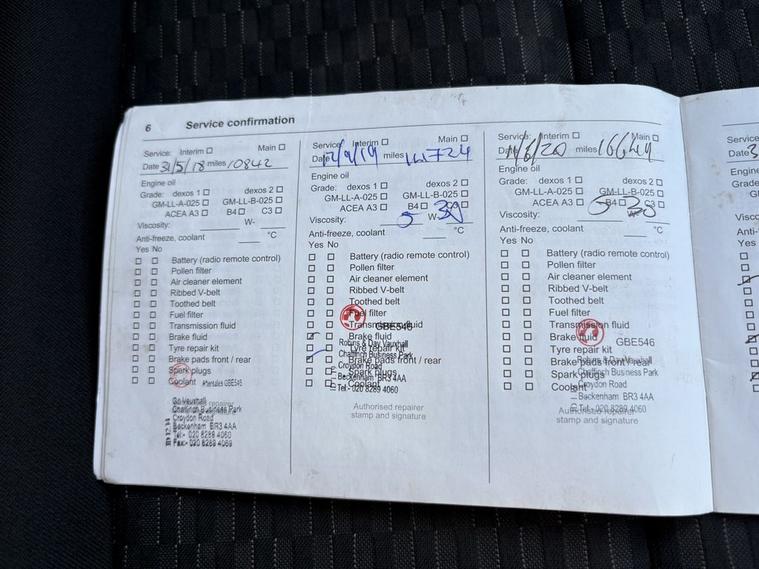 6 Service confirmation
Service: Interim ☐ Main ☐
Date 31/5/18 miles 10842
Engine oil
Grade: dexos 1 ☐ dexos 2 ☐
GM-LL-A-025 ☐ GM-LL-B-025 ☐
ACEA A3 ☐ B4 ☐ C3 ☐
Viscosity: W-
Anti-freeze, coolant °C
Yes No
☐ ☐ Battery (radio remote control)
☐ ☐ Pollen filter
☐ ☐ Air cleaner element
☐ ☐ Ribbed V-belt
☐ ☐ Toothed belt
☐ ☐ Fuel filter
☐ ☐ Transmission fluid
☐ ☐ Brake fluid
☐ ☐ Tyre repair kit
☐ ☐ Brake pads front / rear
☐ ☐ Spark plugs
☐ ☐ Coolant
Aftersales GBE546
Go Vauxhall
Chaffinch Business Park
Croydon Road
Beckenham BR3 4AA
Tel:- 020 8289 4060
Fax:- 020 8289 4069
Service: Interim ☐ Main ☐
Date 12/9/19 miles 14724
Engine oil
Grade: dexos 1 ☐ dexos 2 ☐
GM-LL-A-025 ☐ GM-LL-B-025 ☐
ACEA A3 ☐ B4 ☐ C3
Viscosity: 5 W- 30
Anti-freeze, coolant °C
Yes No
☐ ☐ Battery (radio remote control)
☐ ☐ Pollen filter
☐ ☐ Air cleaner element
☐ ☐ Ribbed V-belt
☐ ☐ Toothed belt
☐ ☐ Fuel filter
☐ ☐ Transmission fluid
GBE546
☐ ☐ Brake fluid
☐ ☐ Tyre repair kit
☐ ☐ Brake pads front / rear
☐ ☐ Spark plugs
☐ ☐ Coolant
Robins & Day Vauxhall
Chaffinch Business Park
Croydon Road
Beckenham BR3 4AA
Tel:- 020 8289 4060
Authorised repairer
stamp and signature
Service: Interim ☐ Main ☐
Date /6/20 miles 16644
Engine oil
Grade: dexos 1 ☐ dexos 2 ☐
GM-LL-A-025 ☐ GM-LL-B-025 ☐
ACEA A3 ☐ B4 ☐ C3 ☐
Viscosity: 5-30
Anti-freeze, coolant °C
Yes No
☐ ☐ Battery (radio remote control)
☐ ☐ Pollen filter
☐ ☐ Air cleaner element
☐ ☐ Ribbed V-belt
☐ ☐ Toothed belt
☐ ☐ Fuel filter
☐ ☐ Transmission fluid
☐ ☐ Brake fluid
GBE546
☐ ☐ Tyre repair kit
☐ ☐ Brake pads front / rear
☐ ☐ Spark plugs
☐ ☐ Coolant
Robins & Day Vauxhall
Chaffinch Business Park
Croydon Road
Beckenham BR3 4AA
Tel:- 020 8289 4060
Authorised repairer
stamp and signature
Service
Date
Engine
Grade
Visco
Anti-
Yes